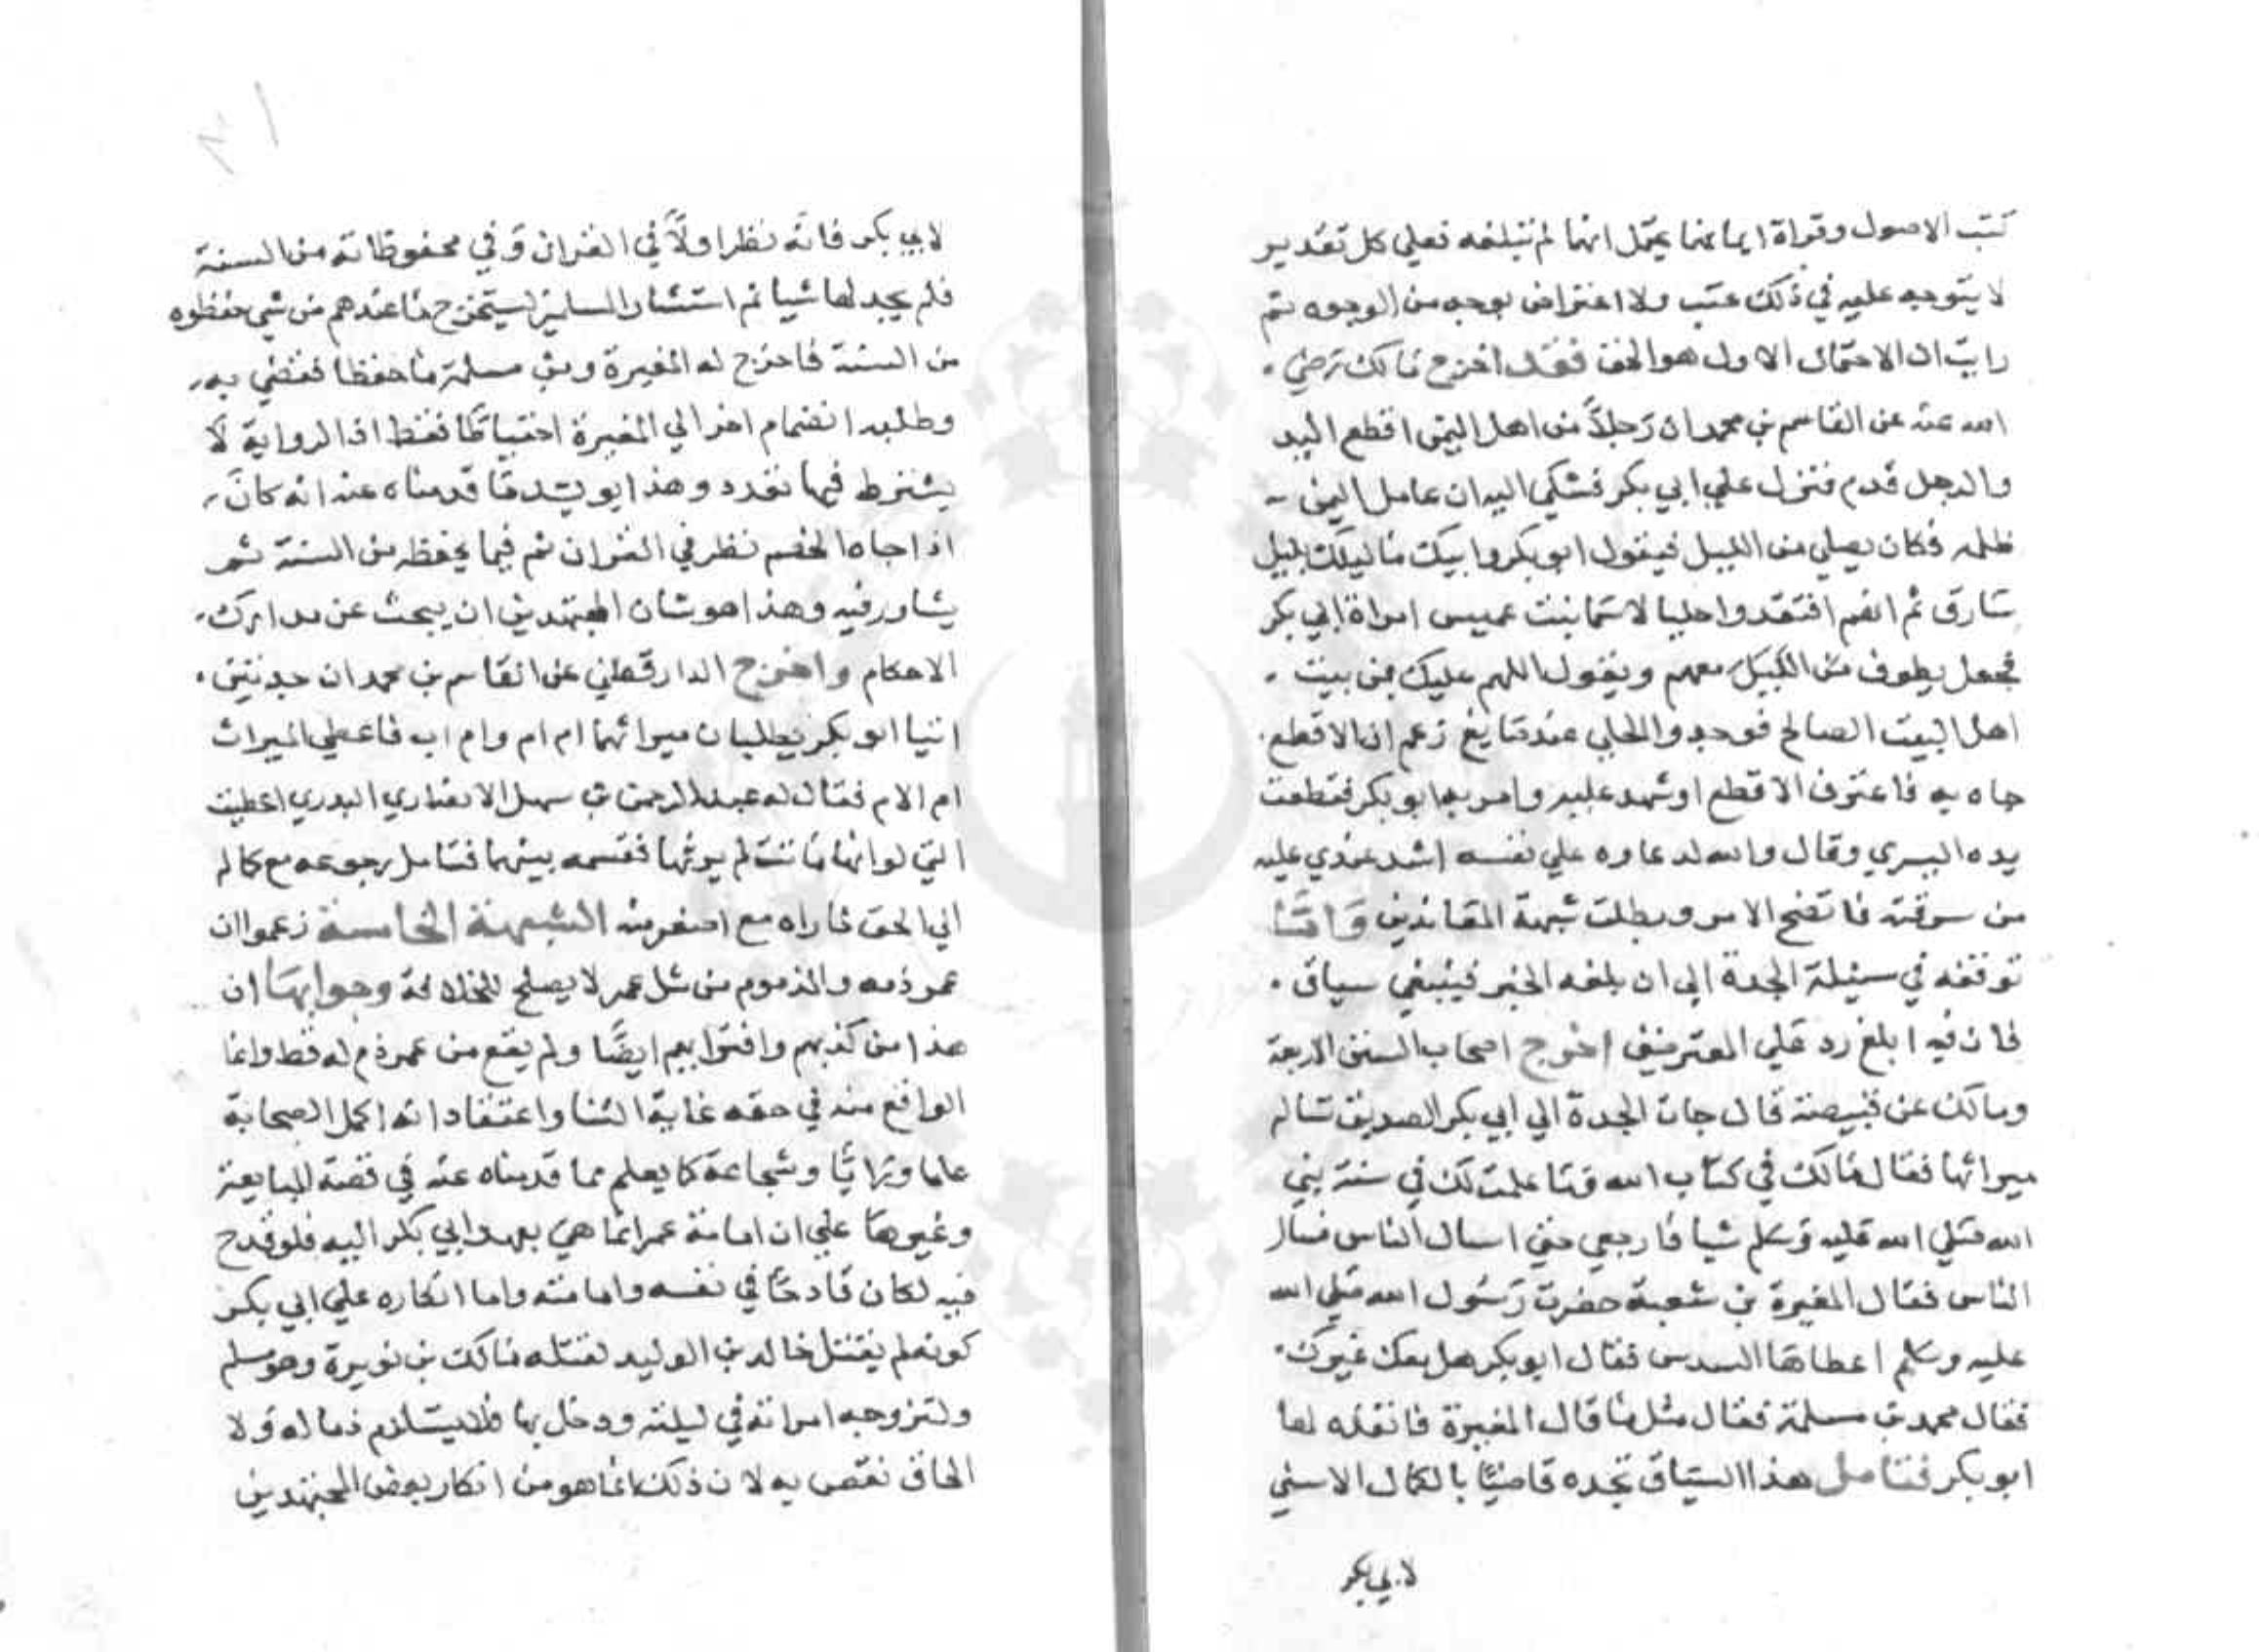 كتب الاصول وقراة ايمانهما يحتمل انها لم تبلغه فعلي كل تقدير
لا يتوجه عليه في ذلك عتب ولا اعتراض بوجه من الوجوه ثم
رايت ان الاحتمال الاول هو الحق فقد اخرج مالك رضي
الله عنه عن القاسم بن محمد ان رجلاً من اهل اليمن اقطع اليد
والرجل قدم فنزل علي ابي بكر فشكي اليه ان عامل اليمن
ظلمه فكان يصلي من الليل فيقول ابو بكر وابيك ما ليلك بليل
سارق ثم انهم افتقدوا حليا لاسما بنت عميس امراة ابي بكر
فجعل يطوف من الليل معهم ويقول اللهم عليك بمن بيت
اهل البيت الصالح فوجدوا الحلي عند صايغ زعم ان الاقطع
جاه به فاعترف الاقطع او شهد عليه وامر به ابو بكر فقطعت
يده اليسري وقال والله لدعاوه علي نفسه اشد عندي عليه
من سرقته فاتضح الامر وبطلت شبهة المعاندين وَامَّا
توقفه في مسئلة الجدة الي ان بلغه الخبر فينبغي سياق
فان فيه ابلغ رد علي المعترضين اخرج اصحاب السنن الاربعة
ومالك عن قبيصة قال جات الجدة الي ابي بكر الصديق تساله
ميراثها فقال مالك في كتاب الله وما علمت لك في سنة نبي
الله صلي الله عليه وسلم شيا فارجعي حتي اسال الناس فسال
الناس فقال المغيرة بن شعبة حضرت رسول الله صلي الله
عليه وسلم اعطاها السدس فقال ابو بكر هل معك غيرك
فقال محمد بن مسلمة فقال مثل ما قال المغيرة فانفذه لها
ابو بكر فتامل هذا السياق تجده قاضيًا بالكمال الاسني
لابي بكر
لابي بكر فانه نظر اولاً في القران وفي محفوظاته من السنة
فلم يجد لها شيا ثم استشار المسلمين ليستخرج ما عندهم من شي حفظوه
من السنة فاخرج له المغيرة وبن مسلمة ما حفظا فقضي به
وطلبه انضمام اخر الي المغيرة احتياطًا فقط اذ الرواية لا
يشترط فيها تعدد وهذا يويد ما قدمناه عنه انه كان
اذا جاه الخصم نظر في القران ثم فيما يحفظه من السنة ثم
يشاور فيه وهذا هو شان المجتهدين ان يبحث عن مدارك
الاحكام واخرج الدارقطني عن القاسم بن محمد ان جدتين
اتيا ابو بكر يطلبان ميراثهما ام ام وام اب فاعطي الميراث
ام الام فقال له عبد الرحمن بن سهل الانصاري البدري اعطيت
التي لو انها ماتت لم يرثها فقسمه بينهما فتامل رجوعه مع كماله
الي الحق لما راه مع اصغر منه الشبهة الخامسة زعموا ان
عمر ذمه والمذموم من مثل عمر لا يصلح للخلافة وجوابها ان
هذا من كذبهم وافترايهم ايضًا ولم يقع من عمر ذم له قط وانما
الواقع منه في حقه غاية الثنا واعتقاد انه اكمل الصحابة
علما ورايًا وشجاعة كما يعلم مما قدمناه عنه في قصة المبايعة
وغيرها علي ان امامة عمر انما هي بعهد ابي بكر اليه فلو قدح
فيه لكان قادحًا في نفسه وامامته واما انكاره علي ابي بكر
كونه لم يقتل خالد بن الوليد لقتله مالك بن نويرة وهو مسلم
ولتزوجه امراته في ليلته ودخل بها فلا يستلزم ذما له ولا
الحاق نقص به لان ذلك انما هو من انكار بعض المجتهدين